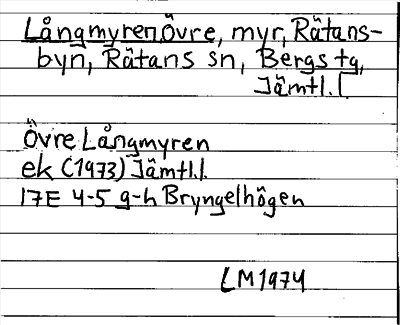 Långmyren, Övre, myr, Rätans-
byn, Rätans sn, Bergs tg,
Jämtl. l.
Övre Långmyren
ek (1973) Jämtl.l.
17E 4-5 g-h Bryngelhögen
LM1974